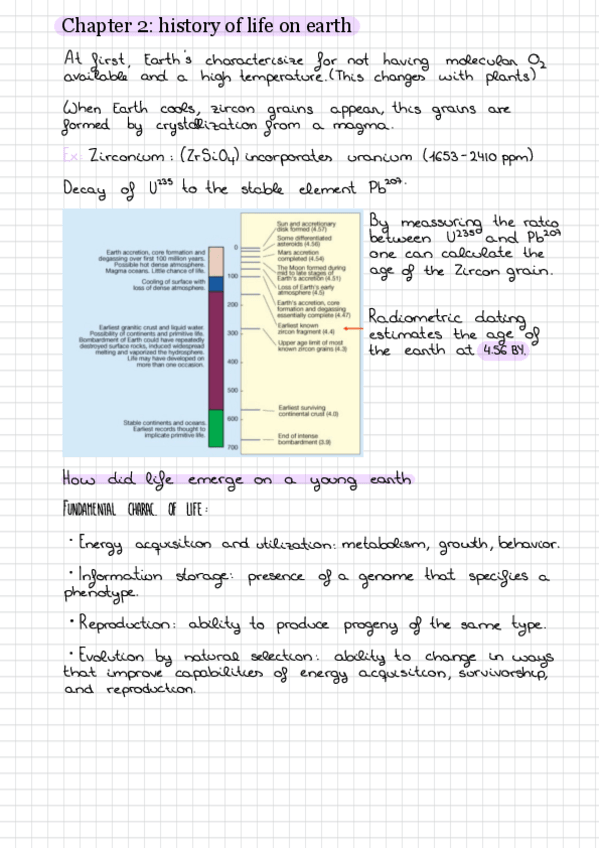 Chapter 2: history of life on earth
At first, Earth's characterisize for not having molecular O2
available and a high temperature. (This changes with plants)
When Earth cools, zircon grains appear, this grains are
formed by crystallization from a magma.
Ex: Zirconium: (ZrSiO4) incorporates uranium (1653-2410 ppm)
Decay of U235 to the stable element Pb207.
Earth accretion, core formation and
degassing over first 100 million years.
Possible hot dense atmosphere.
Magma oceans. Little chance of life.
Cooling of surface with
loss of dense atmosphere.
Earliest granitic crust and liquid water.
Possibility of continents and primitive life.
Bombardment of Earth could have repeatedly
destroyed surface rocks, induced widespread
melting and vaporized the hydrosphere.
Life may have developed on
more than one occasion.
Stable continents and oceans.
Earliest records thought to
implicate primitive life.
0
100
200
300
400
500
600
700
Sun and accretionary
disk formed (4.57)
Some differentiated
asteroids (4.56)
Mars accretion
completed (4.54)
The Moon formed during
mid to late stages of
Earth's accretion (4.51)
Loss of Earth's early
atmosphere (4.5)
Earth's accretion, core
formation and degassing
essentially complete (4.47)
Earliest known
zircon fragment (4.4)
Upper age limit of most
known zircon grains (4.3)
Earliest surviving
continental crust (4.0)
End of intense
bombardment (3.9)
By meassuring the ratio
between U235 and Pb207
one can calculate the
age of the Zircon grain.
Radiometric dating
estimates the age of
the earth at 4.56 BY.
How did life emerge on a young earth
FUNDAMENTAL CHARAC. OF LIFE:
· Energy acquisition and utilization: metabolism, growth, behavior.
· Information storage: presence of a genome that specifies a
phenotype.
· Reproduction: ability to produce progeny of the same type.
· Evolution by natural selection: ability to change in ways
that improve capabilities of energy acquisition, survivorship,
and reproduction.